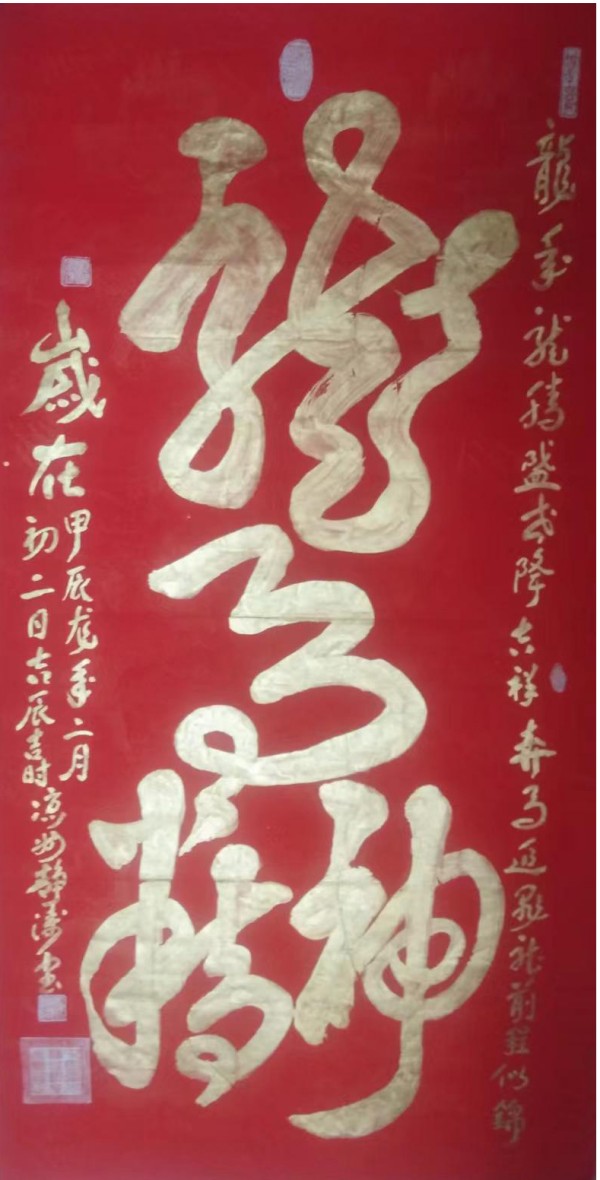 龍年龙腾盛世降吉祥奔马前程似錦
龙马精神
歲在
甲辰龙年二月
初二日吉辰吉时凉州静涛书